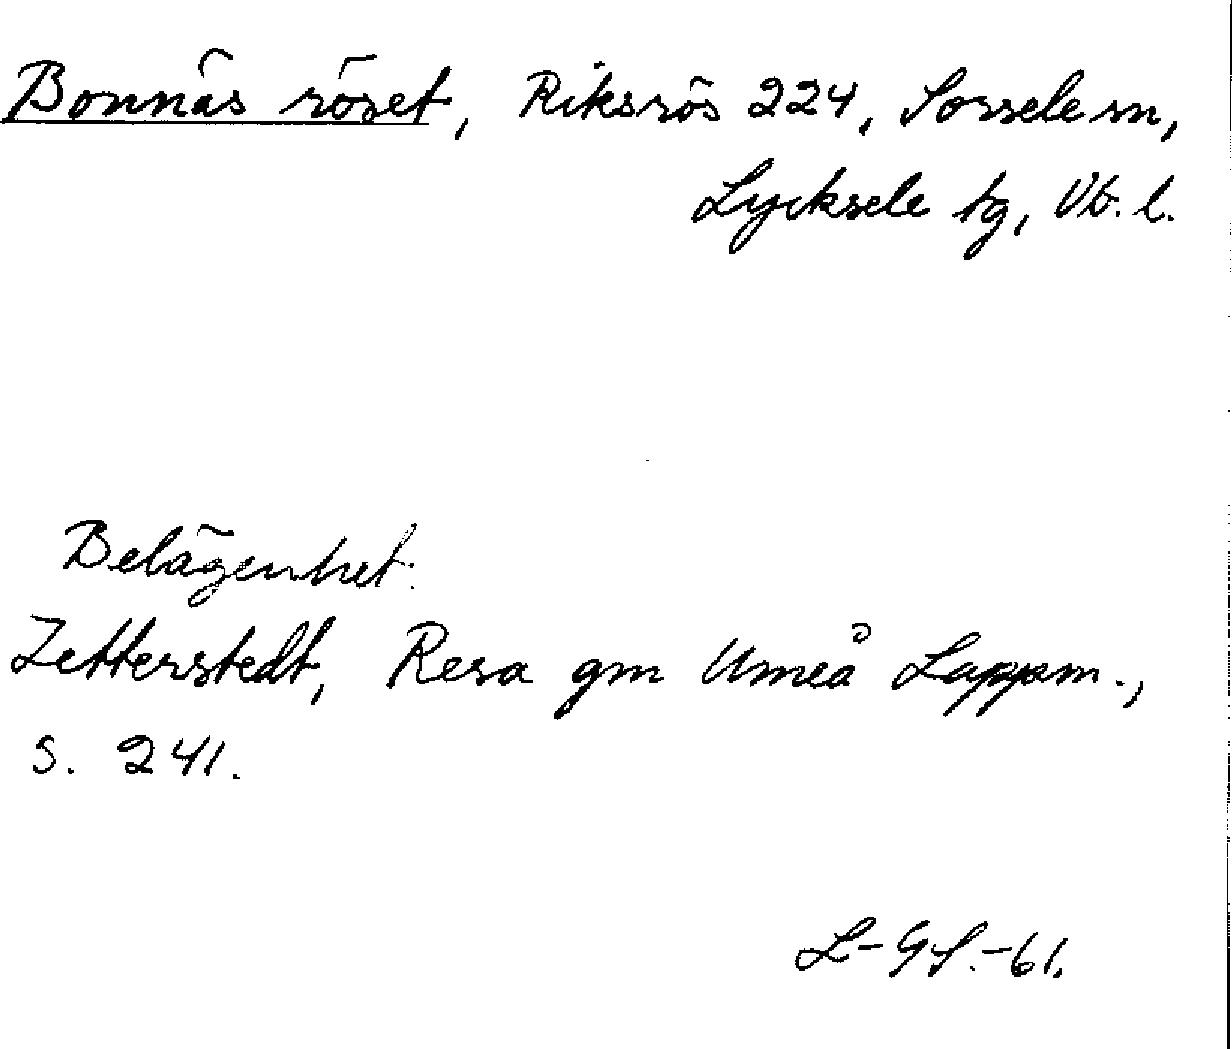 Bonnäs röset, Riksrös 224, Sorsele sn,
Lycksele tg, Vb. l.
Belägenhet:
Zetterstedt, Resa gm Umeå Lappm.,
s. 241.
L-GS.-61.